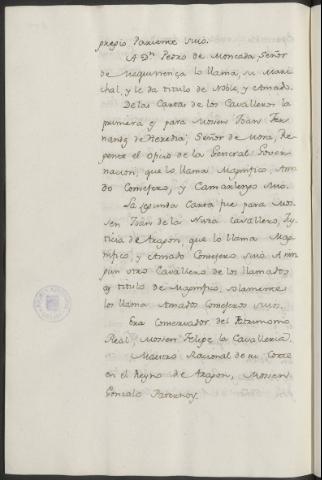 propio Pariente suio.
A Dn. Pedro de Moncada, Señor
de Mequinença lo llama, su Maris
chal, y le da titulo de Noble, y Amado.
De las Cartas de los Cavalleros la
primera es para Mosen Juan Fer
nandez de Heredia, Señor de Mora, Re
gente el Oficio de la General Gover
nacion, que lo llama Magnifico, Ama
do Consejero, y Camarlengo suio.
La segunda Carta fue para Mos
sen Juan de la Nuza Cavallero, Jus
ticia de Aragon, que lo llama Mag
nifico, y Amado Consejero suio. A nin
gun otro Cavallero de los llamados
da titulo de Magnifico, solamente
los llama Amados Consejeros suios.
Era Conservador del Patrimonio
Real, Mossen Felipe la Cavalleria.
Maestro Racional de su Corte
en el Reyno de Aragon, Mossen
Gonzalo Paternoy.